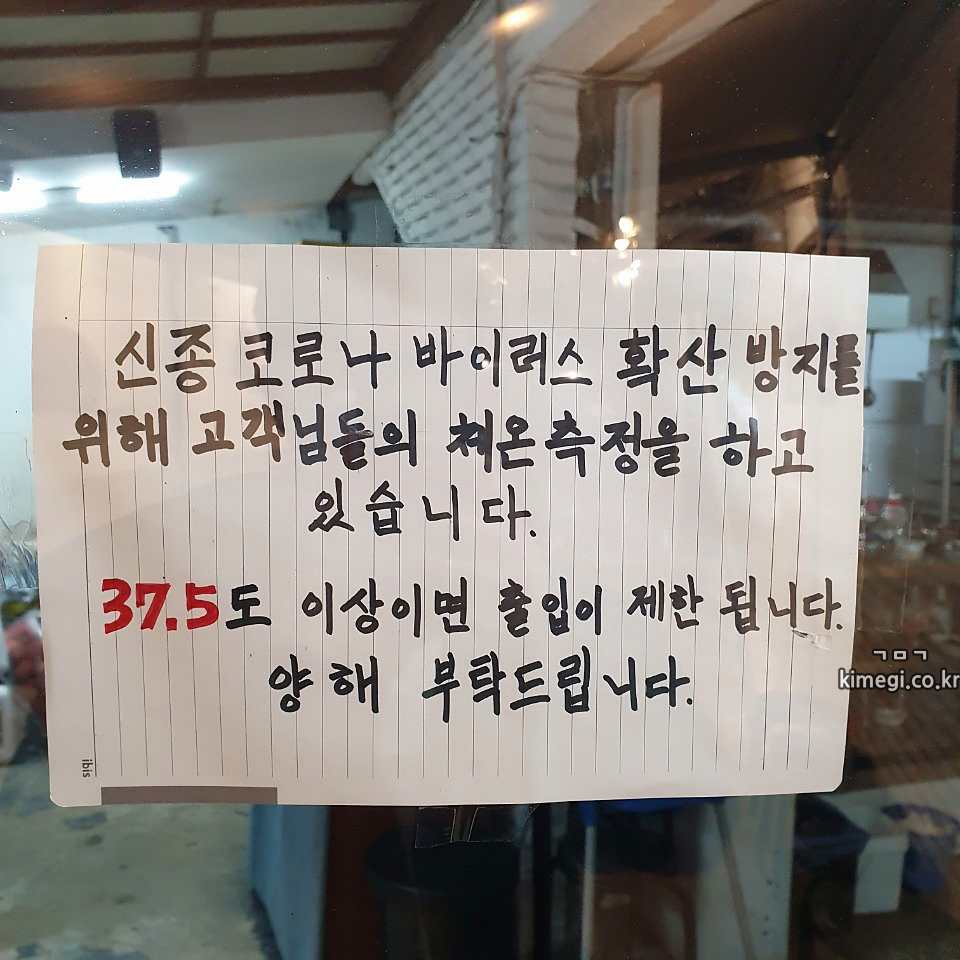 신종 코로나 바이러스 확산 방지를
위해 고객님들의 체온측정을 하고
있습니다.
37.5도 이상이면 출입이 제한 됩니다.
양해 부탁드립니다.
ㄱㅁㄱ
kimegi.co.kr
ibis